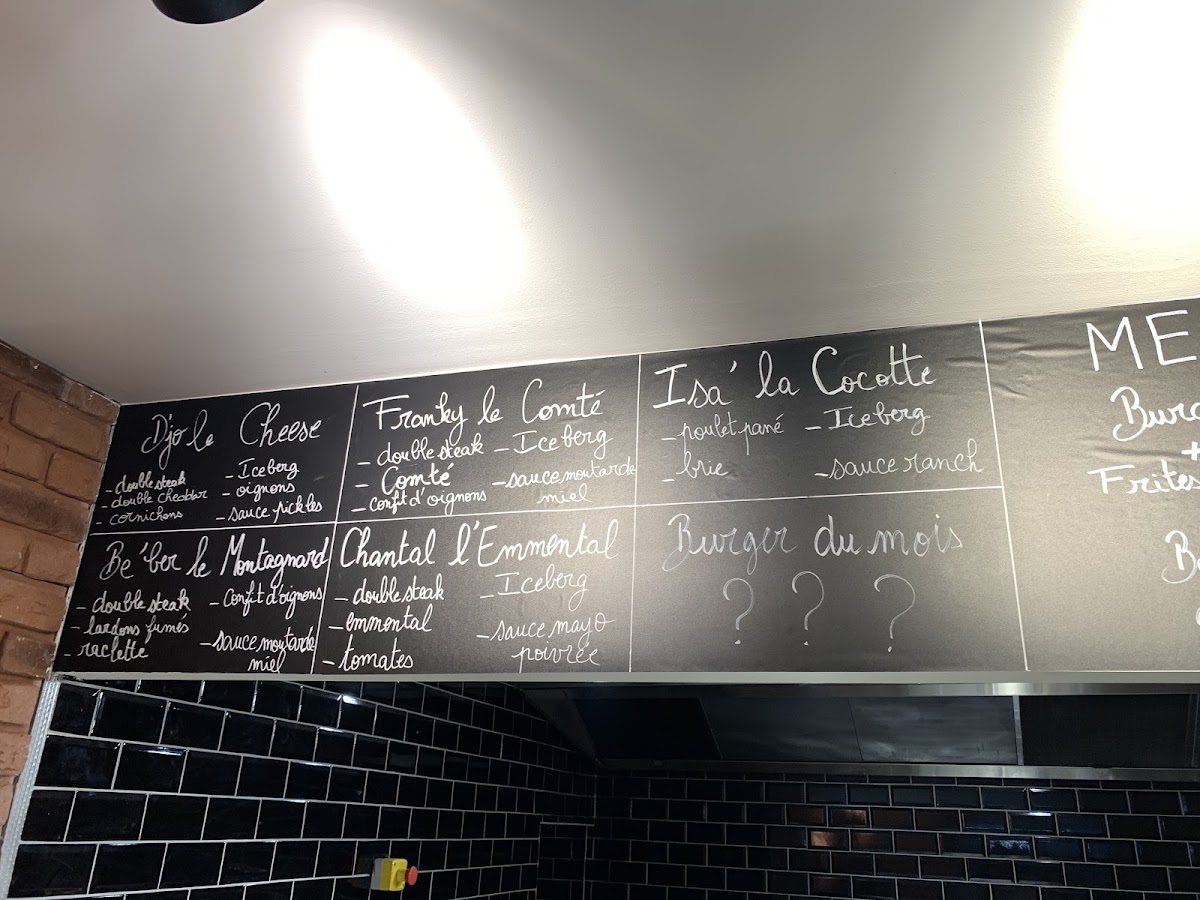 Djo le Cheese
- double steak
- double cheddar
- cornichons
- Iceberg
- oignons
- sauce pickles
Franky le Comté
- double steak
- Comté
- confit d'oignons
- Iceberg
- sauce moutarde
miel
Isa' la Cocotte
- poulet pané
- brie
- Iceberg
- sauce ranch
Be'ber le Montagnard
- double steak
- lardons fumés
- raclette
- confit d'oignons
- sauce moutarde
miel
Chantal l'Emmental
- double steak
- emmental
- tomates
- Iceberg
- sauce mayo
poivrée
Burger du mois
? ? ?
ME
Burg
+
Frites